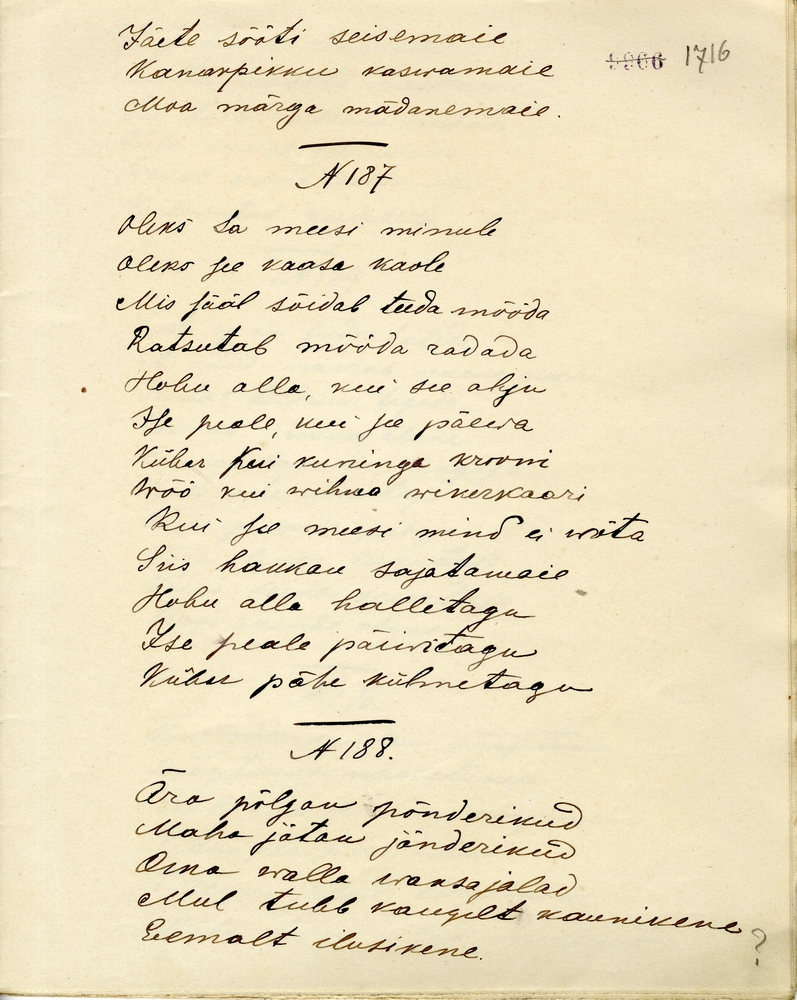 Jäete sööti seisemaie
9966 1716
Kanarpikku kaswamaie
Moa märga mädanemaie.
N 187
Oleks sa meesi minule
Oleks see kaasa kaole
Mis sääl sõidab teeda mööda
Ratsutab mööda radada
Hobu alla, kui see ahju
Ise peale, kui se päewa
Kübar kui kuninga krooni
Wöö kui wihma wikerkaari
Kui see meesi mind ei wõta
Siis hakkan sajatamaie
Hobu alla hallitagu
Ise peale päiwitagu
Kübar pähe külmetagu
N 188.
Ära põlgan pōnderikud
Maha jätan jōnderikud
Oma walla waksajalad
Mul tuleb kaugelt kaunikene
Eemalt ilusikene. ?